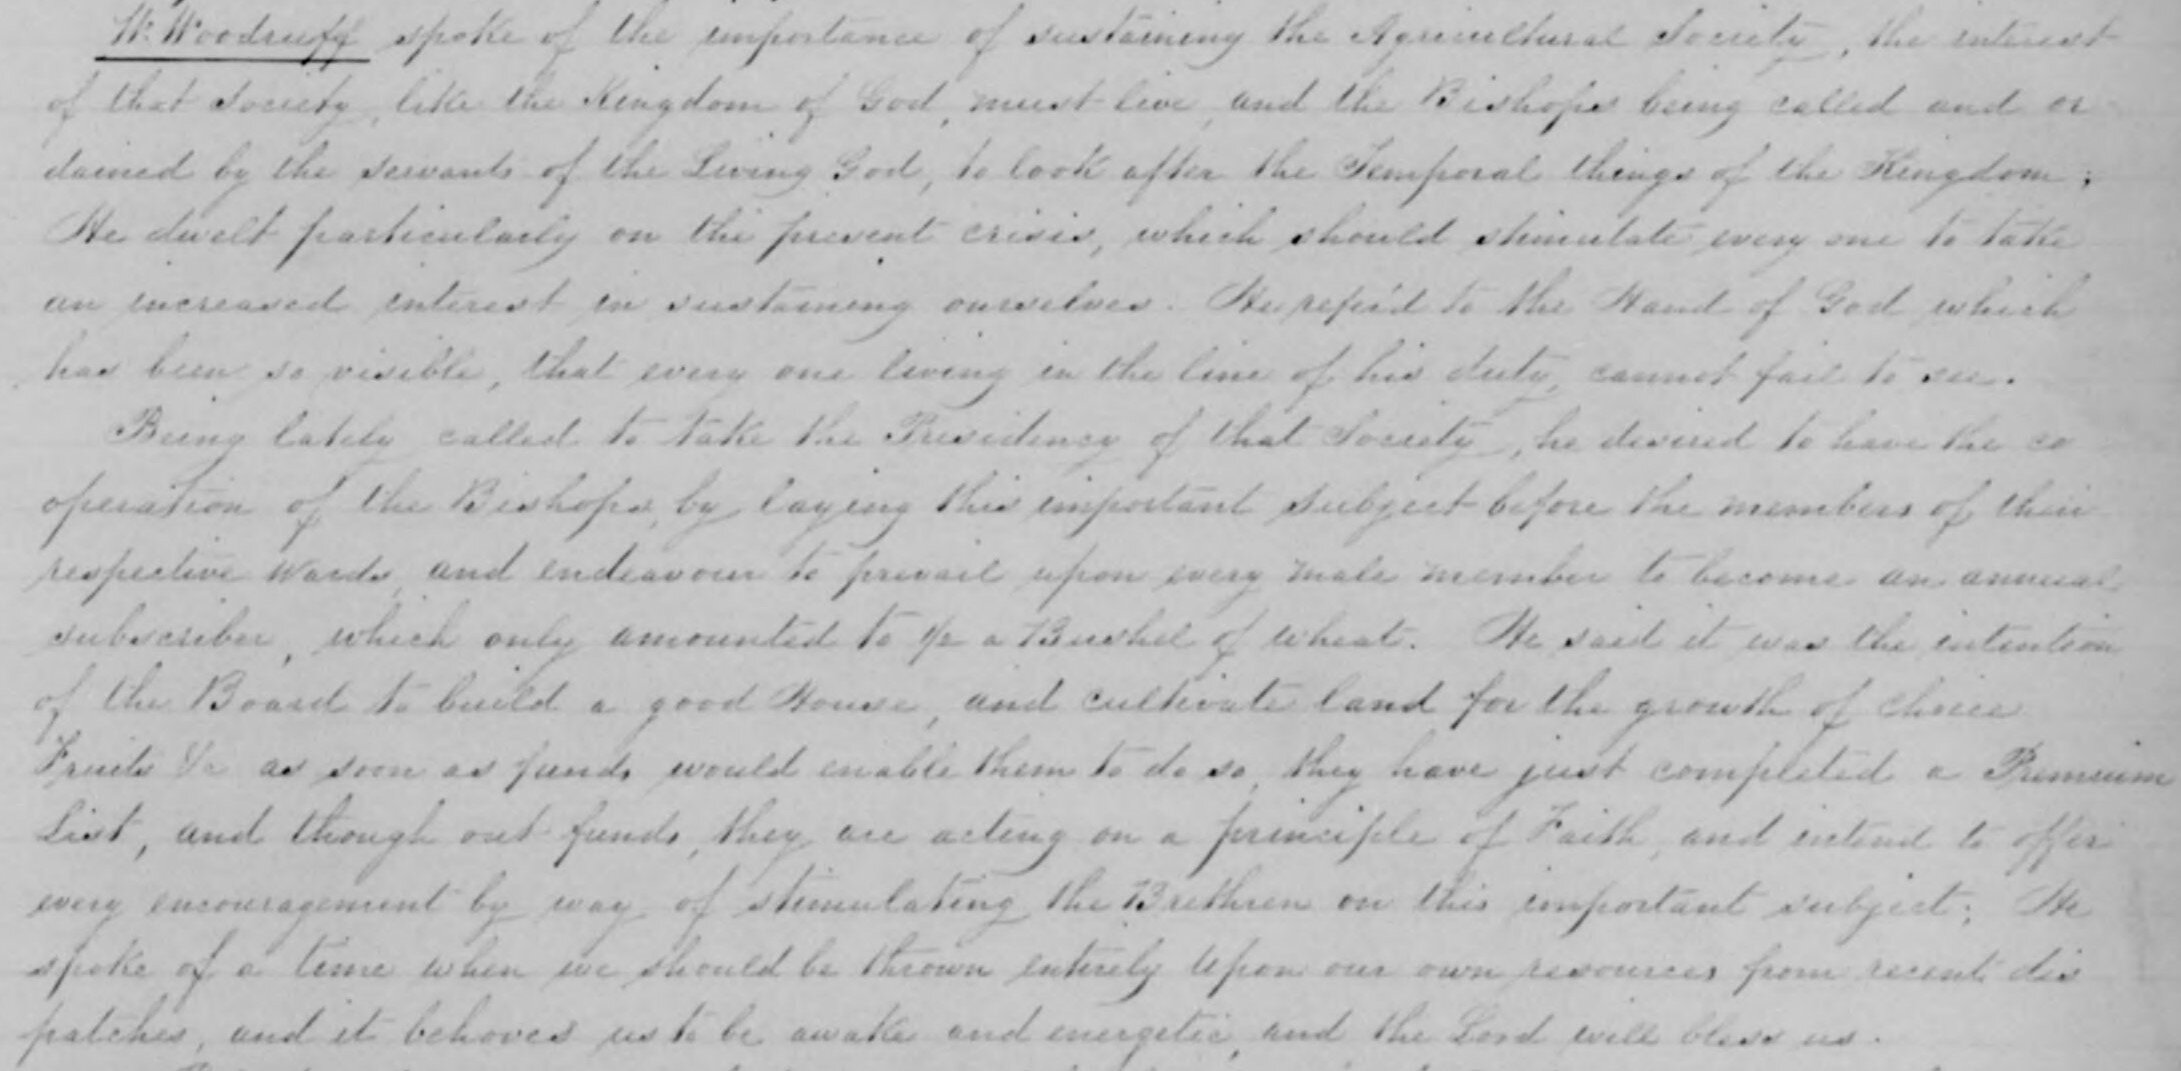 W. Woodruff spoke of the importance of sustaining the Agricultural Society, the interest
of that Society, like the Kingdom of God, must live, and the Bishops being called and or
dained by the servants of the Living God, to look after the Temporal things of the Kingdom;
He dwelt particularly on the present crisis, which should stimulate every one to take
an increased interest in sustaining ourselves. He refer'd to the Hand of God which
has been so visible, that every one living in the line of his duty, cannot fail to see.
Being lately called to take the Presidency of that Society, he desired to have the co
operation of the Bishops, by laying this important subject before the members of their
respective Wards, and endeavour to prevail upon every male member to become an annual
subscriber, which only amounted to 1/2 a Bushel of wheat. He said it was the intention
of the Board to build a good House, and cultivate land for the growth of choice
Fruits &c as soon as funds would enable them to do so, they have just completed a Premium
List, and though out funds, they are acting on a principle of Faith, and intend to offer
every encouragement by way of stimulating the Brethren on this important subject; He
spoke of a time when we should be thrown entirely upon our own resources from recent dis
patches, and it behoves us to be awake and energetic, and the Lord will bless us.